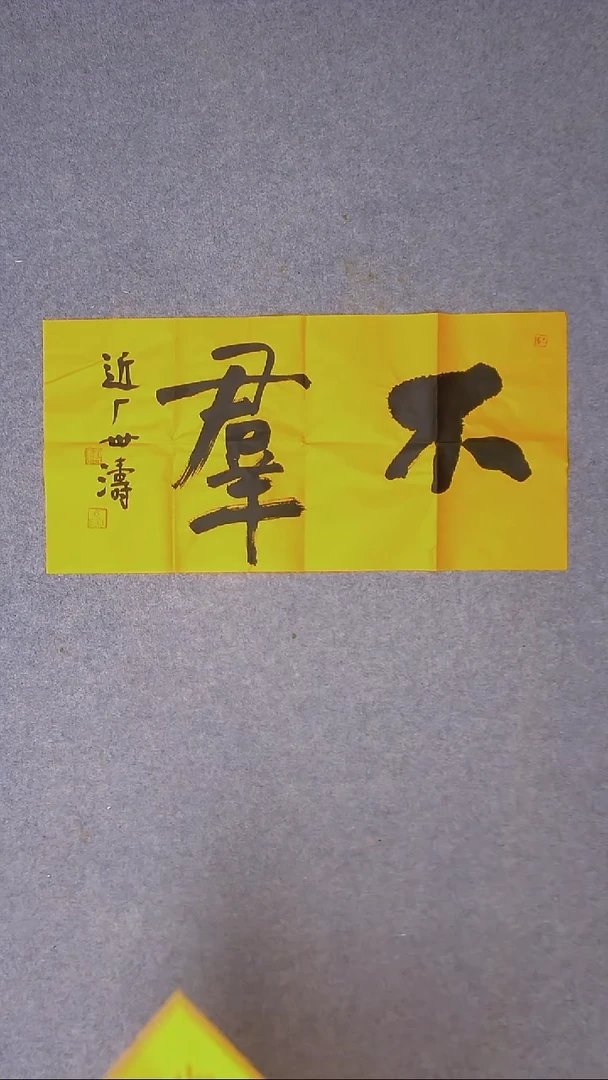 不羣
近厂世濤